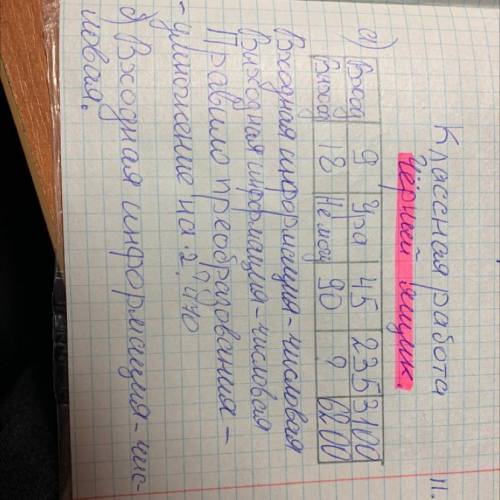 Классная работа 11.
Чёрный ящик.
а) Вход 9 Ура 45 235 3100
Выход 18 Не могу 90 ? 6200
Входная информация - числовая
Выходная информация - числовая
Правило преобразования -
- умножение на 2. 470
б) Входная информация - чис-
ловая.